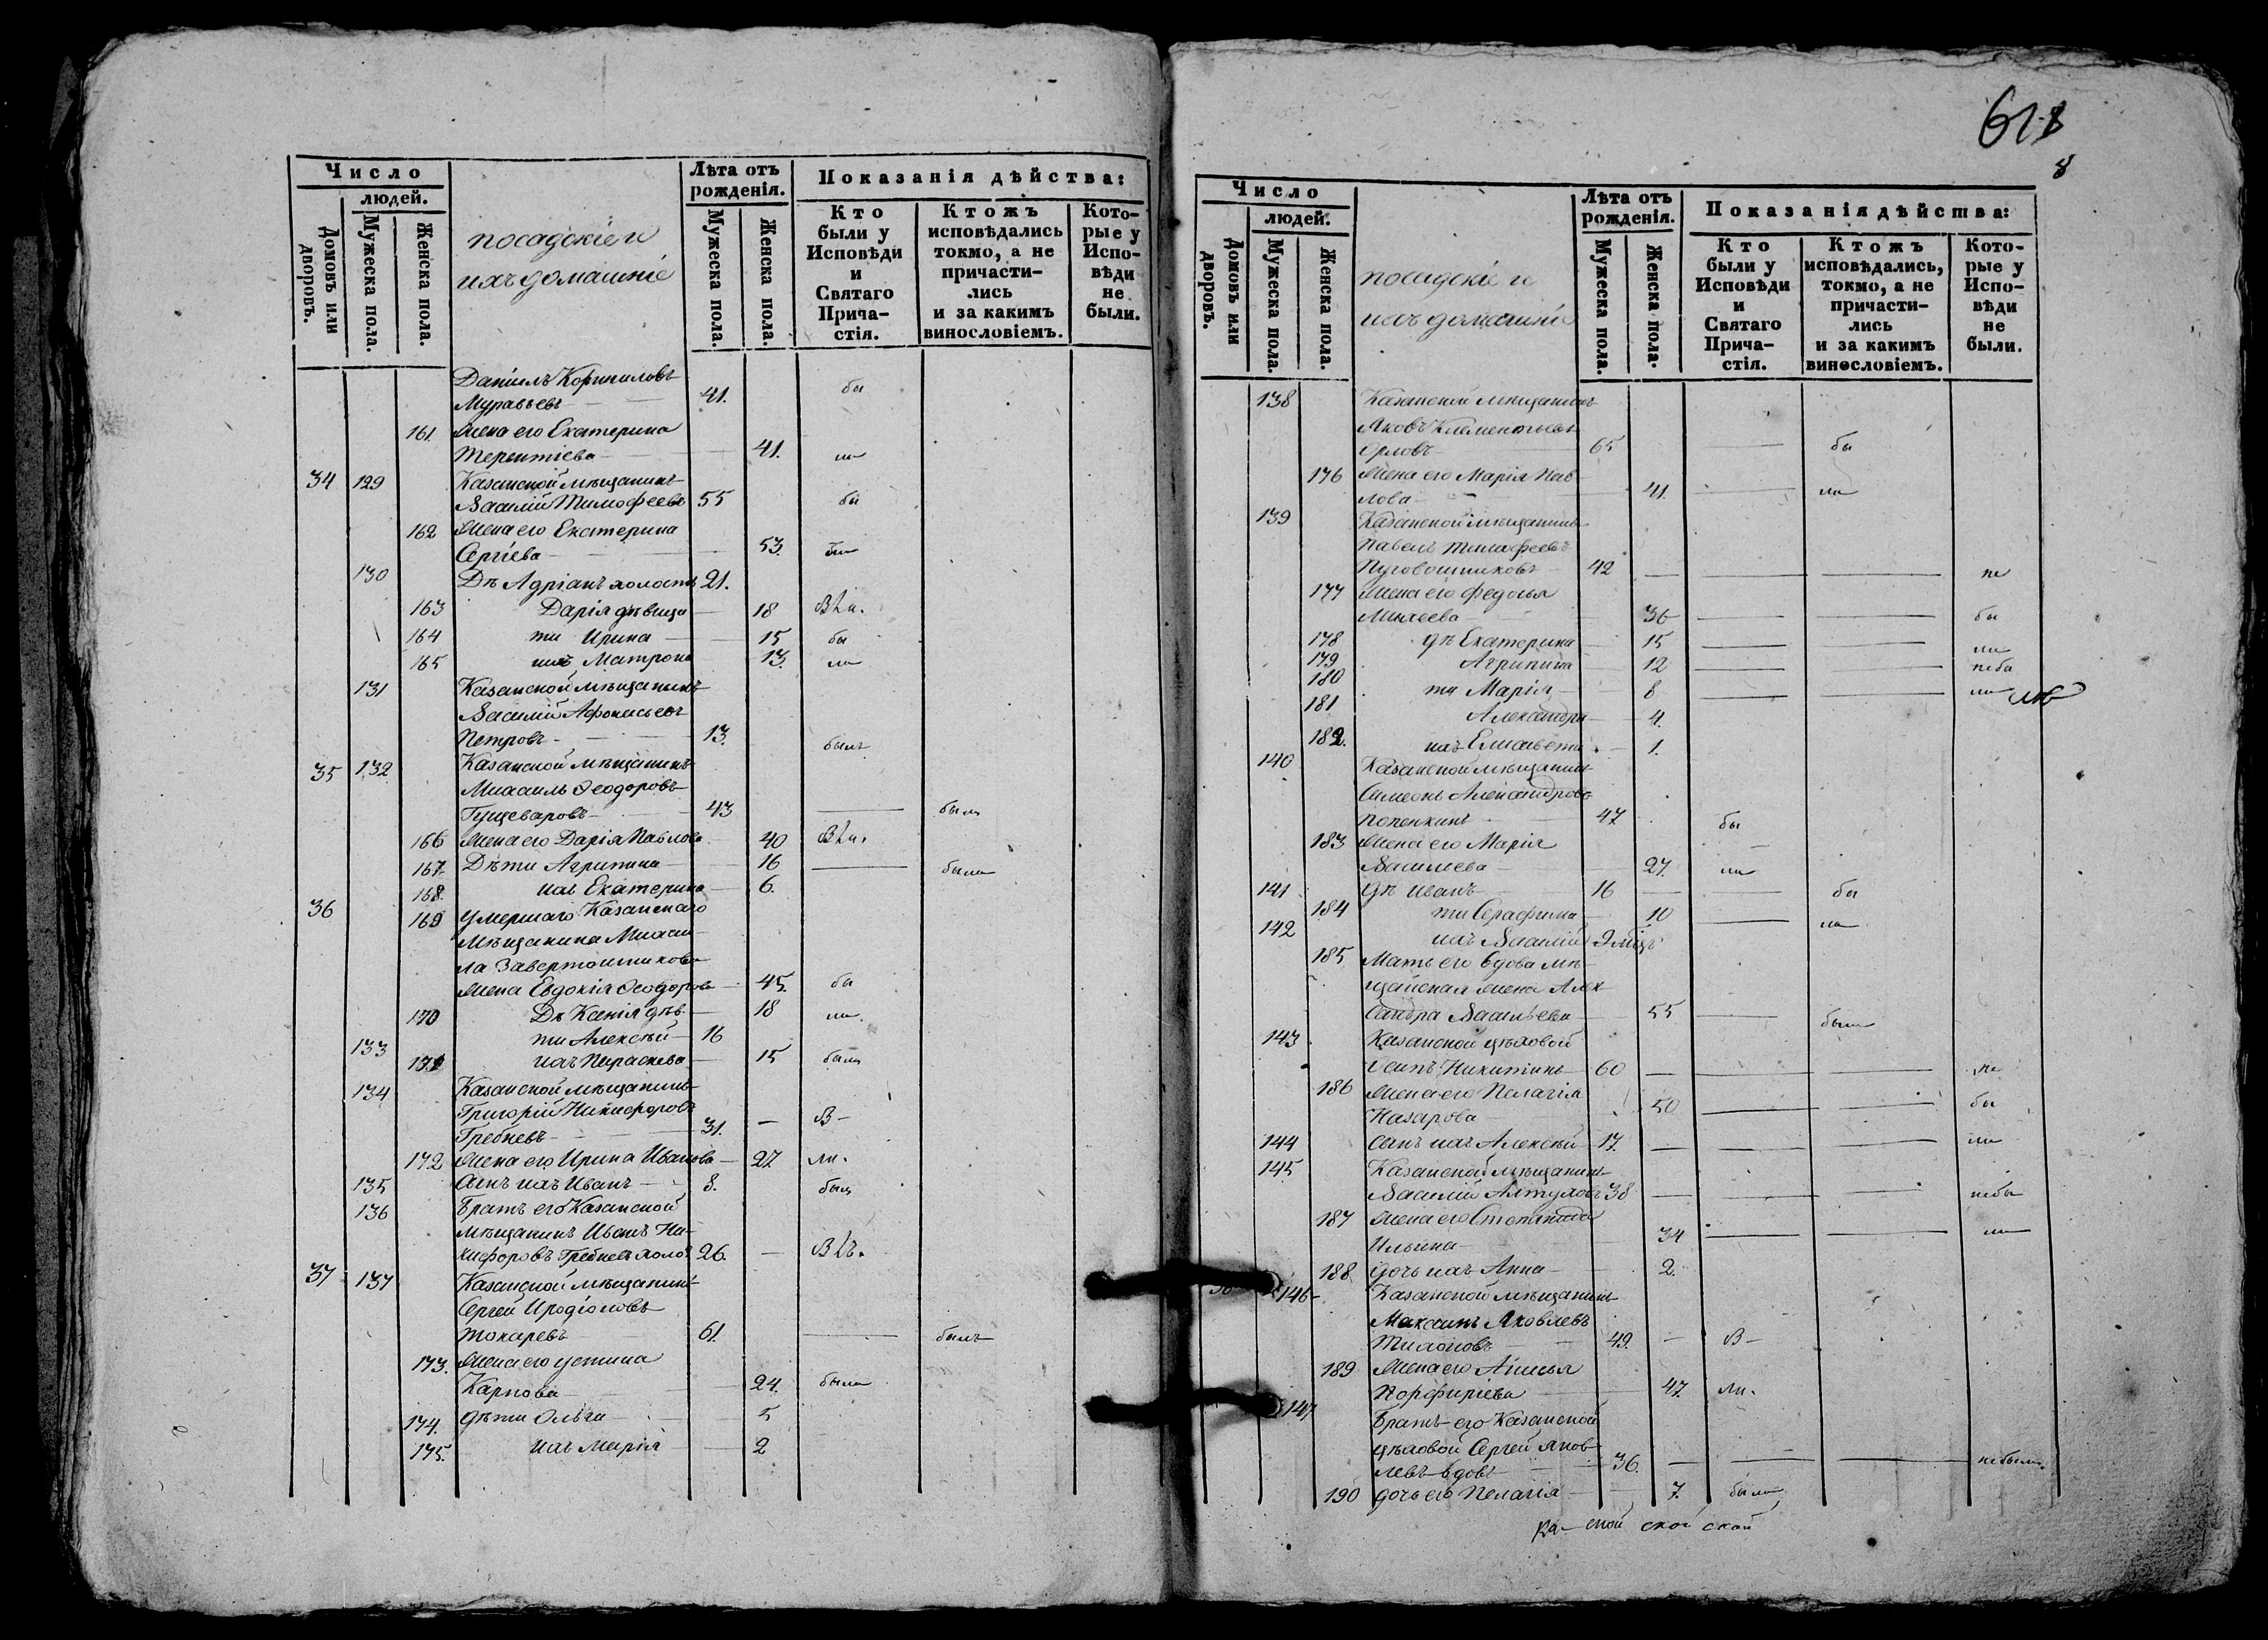 Число
людей.
Домовъ или дворовъ.
Мужеска пола.
Женска пола.
посадскіе и
ихъ домашніе
Лѣта отъ
рожденія.
Мужеска пола.
Женска пола.
Показанія дѣйства:
Кто
были у
Исповѣди
и
Святаго
Прича-
стія.
Ктожъ
исповѣдались
токмо, а не
причасти-
лись
и за какимъ
винословіемъ.
Кото-
рые у
Испо-
вѣди
не
были.
Даніилъ Корниловъ
Муравьевъ 41. бы
161. Жена его Екатерина
Терентіева 41. ли
34 129 Казанской мѣщанинъ
Василій Тимофеевъ 55 бы
162 Жена его Екатерина
Сергіева 53. ли
130 Дѣ Адріанъ холостъ 21.
163 Дарія дѣвица 18
164 ти Ирина 15 бы
165 ихъ Матрона 13. ли
131 Казанской мѣщанинъ
Василій Афонасьевъ
Петровъ 13. былъ
35 132 Казанской мѣщанинъ
Михаилъ Ѳеодоровъ
43 былъ
166 Жена его Дарія Павлова 40
167. Дѣти Агрипина 16 была
168. ихъ Екатерина 6.
36 169 Умершаго Казанскаго
Мѣщанина Михаи-
ла Завертошникова
жена Евдокія Ѳеодорова 45. бы
170 Дѣ Ксенія дѣв. 18 ли
133 ти Алексѣй 16
171 ихъ Параскева 15 была
134 Казанской мѣщанинъ
Григорій Никифоровъ
Гребневъ 31. — В —
172 Жена его Ирина Иванова 27 ли.
135 Сынъ ихъ Иванъ 8. былъ
136 Братъ его Казанской
мѣщанинъ Иванъ Ни-
кифоровъ Гребневъ холос 26. —
37 137 Казанской мѣщанинъ
Сергей Иродіоновъ
Токаревъ 61. былъ
173. Жена его Устина
Карпова 24. была
174. дѣти Ольга 5
175. ихъ Марія 2
611
8
Число
людей.
Домовъ или дворовъ.
Мужеска пола.
Женска пола.
посадскіе и
ихъ домашніе
Лѣта отъ
рожденія.
Мужеска пола.
Женска пола.
Показанія дѣйства:
Кто
были у
Исповѣди
и
Святаго
Прича-
стія.
Ктожъ
исповѣдались,
токмо, а не
причасти-
лись
и за какимъ
винословіемъ.
Кото-
рые у
Испо-
вѣди
не
были.
138 Казанской мѣщанинъ
Яковъ Климентьевъ
Орловъ 65 бы
176 Жена его Марія Пав-
лова 41. ли
139 Казанской мѣщанинъ
Павелъ Тимофеевъ
Пуговошниковъ 42 не
177 Жена его Федосья
Михеева 36 бы
178 дѣ Екатерина 15 ли
179 Агрипина 12 небы
180 ти Марія 8 ли
181 Александра 4.
182. ихъ Елисавета 1.
140 Казанской мѣщанинъ
Симеонъ Александровъ
Попенкинъ 47 бы
183 Жена его Марія
Васильева 27. ли
141 дѣ Иванъ 16 бы
184 ти Серафима 10 ли
142 ихъ Василій 9 мѣцъ
185 Мать его вдова мѣ-
щанская жена Алек-
сандра Васильева 55 была
143 Казанской цѣховой
Осипъ Никитинъ 60 не
186 Жена его Пелагія
Назарова 50 бы
144 сынъ ихъ Алексѣй 17. ли
145 Казанской мѣщанинъ
Василій Алтуховъ 38 небы
187 Жена его Степанида
Ильина 34 ли
188 дочь ихъ Анна 2.
146 Казанской мѣщанинъ
Максимъ Яковлевъ
Тихоновъ 49. — В —
189 Жена его Анисья
Порфиріева 47. ли.
147 Братъ его Казанской
цѣховой Сергей Яков-
левъ вдовъ 36. небылъ.
190 дочь его Пелагія 7. была
Ка- ской ской ской